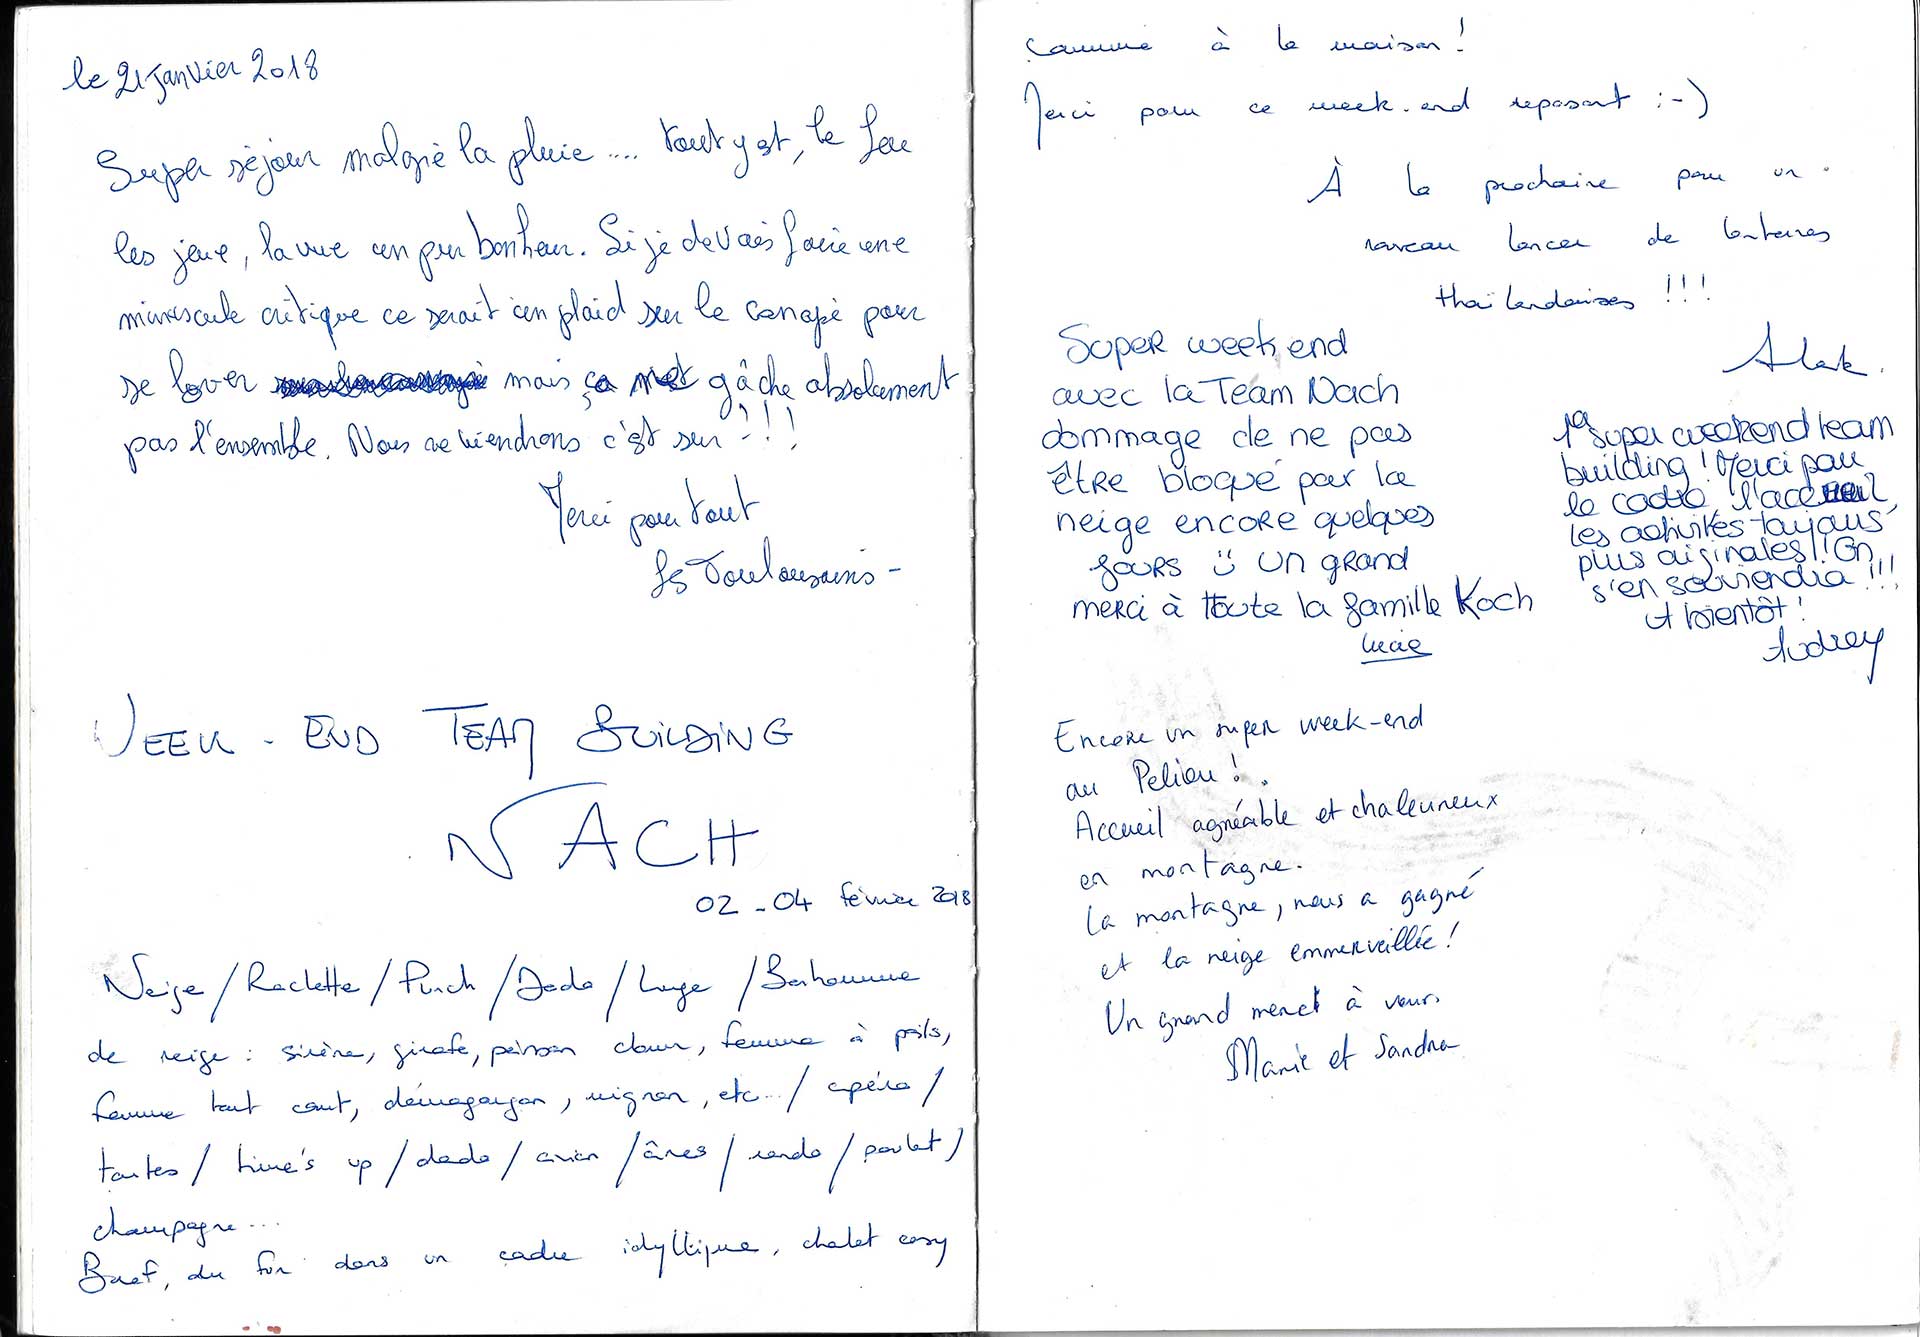 le 21 Janvier 2018
Super séjour malgré la pluie .... tout y est, le feu
les jeux, la vue un pur bonheur. Si je devais faire une
minuscule critique ce serait un plaid sur le canapé pour
se lover mais ça gâche absolument
pas l'ensemble. Nous reviendrons c'est sur !!!
Merci pour tout
les Toulousains -
WEEK - END TEAM BUILDING
NACH
02 - 04 février 2018
Neige / Raclette / Punch / Dodo / Luge / Bonhomme
de neige : sirène, girafe, poisson clown, femme à poils,
femme tout court, démogorgon, mignon, etc... / apéro /
tartes / time's up / dodo / / ânes / rando / poulet /
champagne ...
Bref, du fun dans un cadre idyllique, chalet cosy
comme à la maison !
Merci pour ce week-end reposant :-)
À la prochaine pour un
nouveau lancer de lanternes
thaïlandaises !!!
Super week end
avec la Team Nach
dommage de ne pas
être bloqué par la
neige encore quelques
jours ü un grand
merci à toute la famille Koch
Lucie
super weekend team
building ! Merci pour
le cadre, l'accueil,
les activités toujours
plus originales ! On
s'en souviendra !!!
A bientôt !
Audrey
Encore un super week-end
au Peliou !
Accueil agréable et chaleureux
en montagne.
La montagne, nous a gagné
et la neige emmerveillée !
Un grand merci à vous.
Marie et Sandra